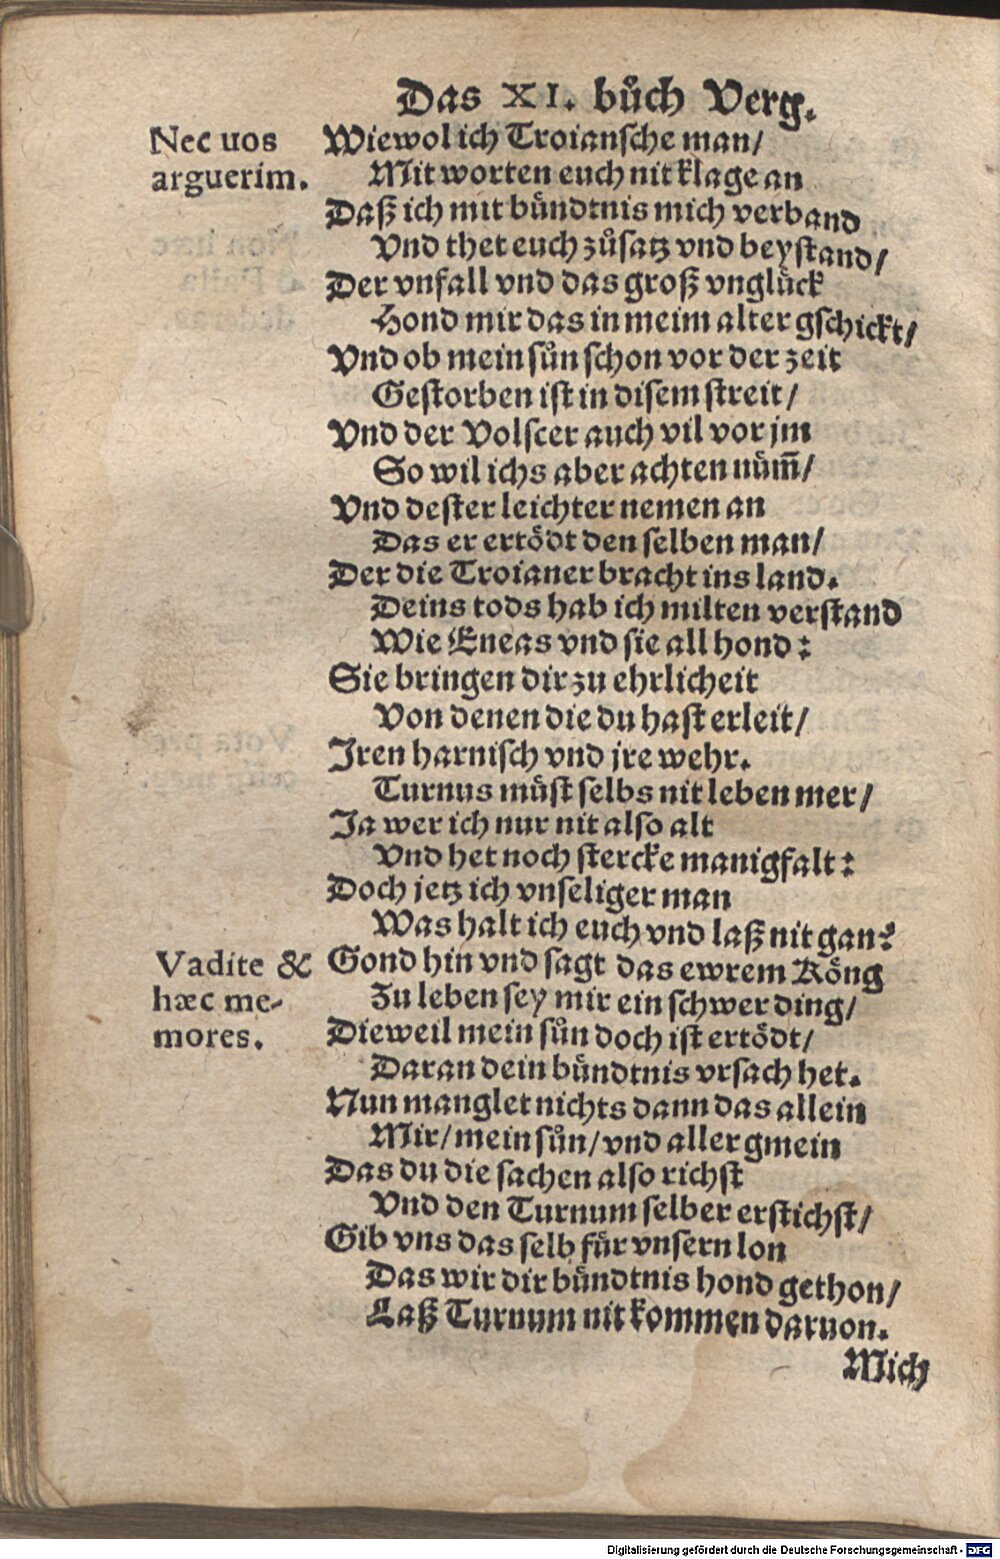 Das XI. bůch Verg.
Nec uos
arguerim.
Wiewol ich Troiansche man/
Mit worten euch nit klage an
Daß ich mit bündtnis mich verband
Vnd thet euch zůsatz vnd beystand/
Der vnfall vnd das groß vnglück
Hond mir das in meim alter gschickt/
Vnd ob mein sůn schon vor der zeit
Gestorben ist in disem streit/
Vnd der Volscer auch vil vor jm
So wil ichs aber achten nüm̄/
Vnd dester leichter nemen an
Das er ertödt den selben man/
Der die Troianer bracht ins land.
Deins tods hab ich milten verstand
Wie Eneas vnd sie all hond:
Sie bringen dir zu ehrlicheit
Von denen die du hast erleit/
Iren harnisch vnd jre wehr.
Turnus müst selbs nit leben mer/
Ja wer ich nur nit also alt
Vnd het noch stercke manigfalt:
Doch jetz ich vnseliger man
Was halt ich euch vnd laß nit gan?
Vadite &
hæc me-
mores.
Gond hin vnd sagt das ewrem Köng
Zu leben sey mir ein schwer ding/
Dieweil mein sůn doch ist ertödt/
Daran dein bündtnis vrsach het.
Nun manglet nichts dann das allein
Mir/ mein sůn/ vnd aller gmein
Das du die sachen also richst
Vnd den Turnum selber erstichst/
Gib vns das selb für vnsern lon
Das wir dir bündtnis hond gethon/
Laß Turnum nit kommen daruon.
Mich
Digitalisierung gefördert durch die Deutsche Forschungsgemeinschaft - DFG